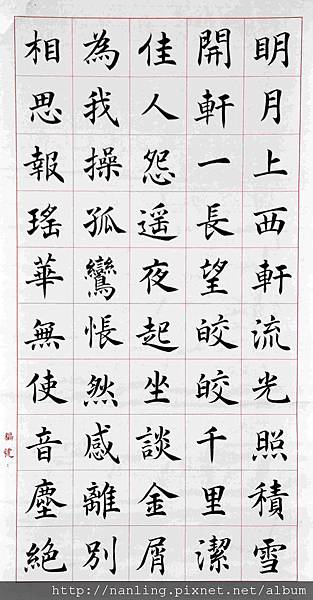 明月上西軒流光照積雪
開軒一長望皎皎千里潔
佳人怨遥夜起坐談金屑
為我操孤鸞悵然感離別
相思報瑤華無使音塵絕
http://nanling.pixnet.net/album